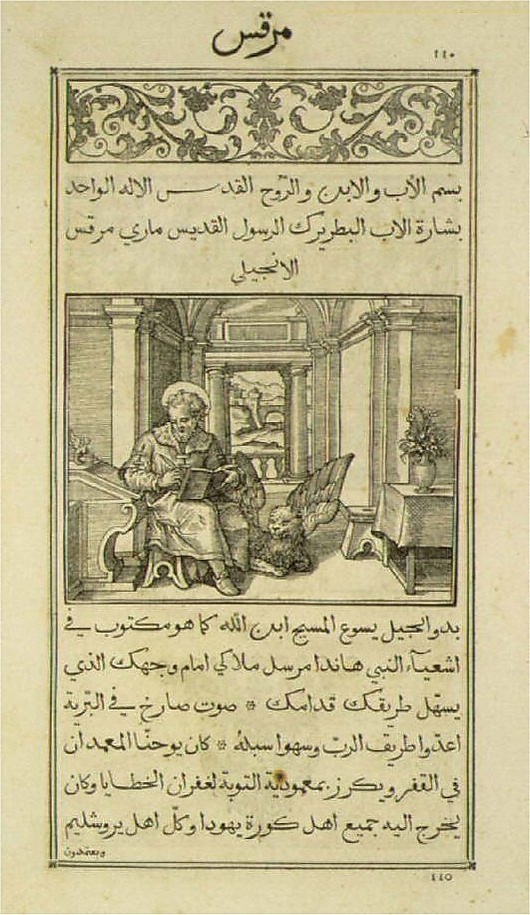 مرقس
١١٠
بسم الأب والابن والرّوح القدس الاله الواحد
بشارة الاب البطريرك الرسول القديس ماري مرقس
الانجيلي
بدو انجيل يسوع المسيح ابن الله كما هو مكتوب في
اشعيآء النبي هاندا مرسل ملاكي امام وجهك الذي
يسهّل طريقك قدامك * صوت صارخ في البّرية
اعدّوا طريق الربّ وسهوا سبلهُ * كان يوحنّا المعمدان
في القفر ويكرز بمعمودية التوبة لغفران الخطايا وكان
يخرج اليه جميع اهل كورة يهودا وكلّ اهل يروشليم
ويعتمدون
110